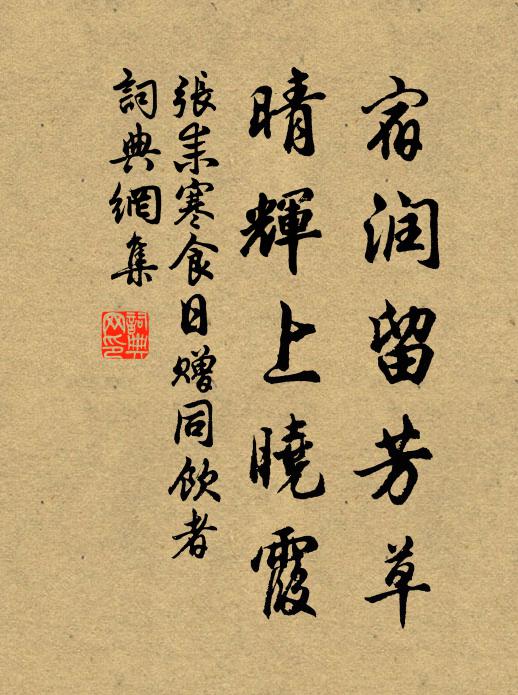 宿润留芳草
晴輝上曉霞
張耒寒食日赠同飲者
詞典網集
詞典
网印